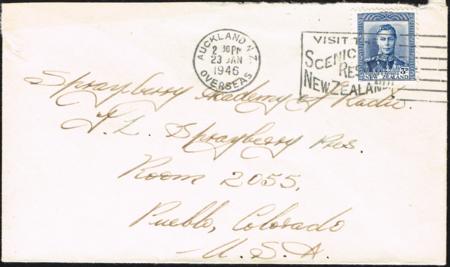 AUCKLAND N.Z.
2 30 PM
23 JAN
1946
OVERSEAS
VISIT T
SCENIC
RES
NEW ZEALAND
Sprayberry Academy of Radio.
F. L. Sprayberry Pres.
Room 2055,
Pueblo, Colorado
U.S.A.